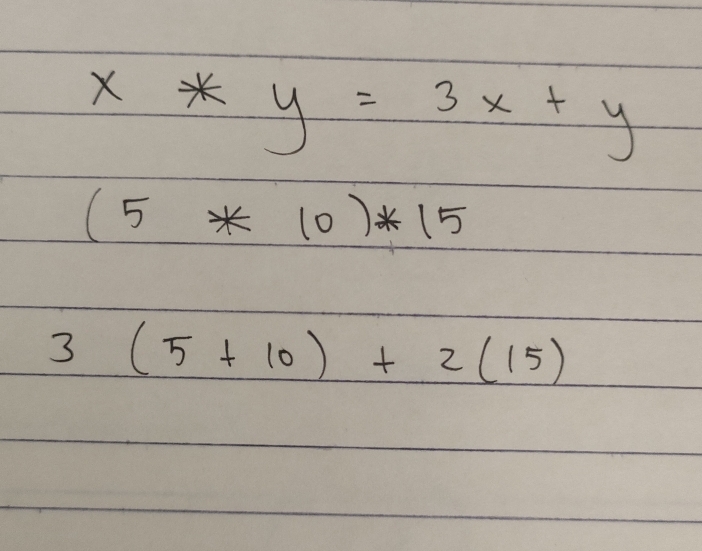 x * y = 3x + y
(5 * 10) * 15
3 (5 + 10) + 2(15)